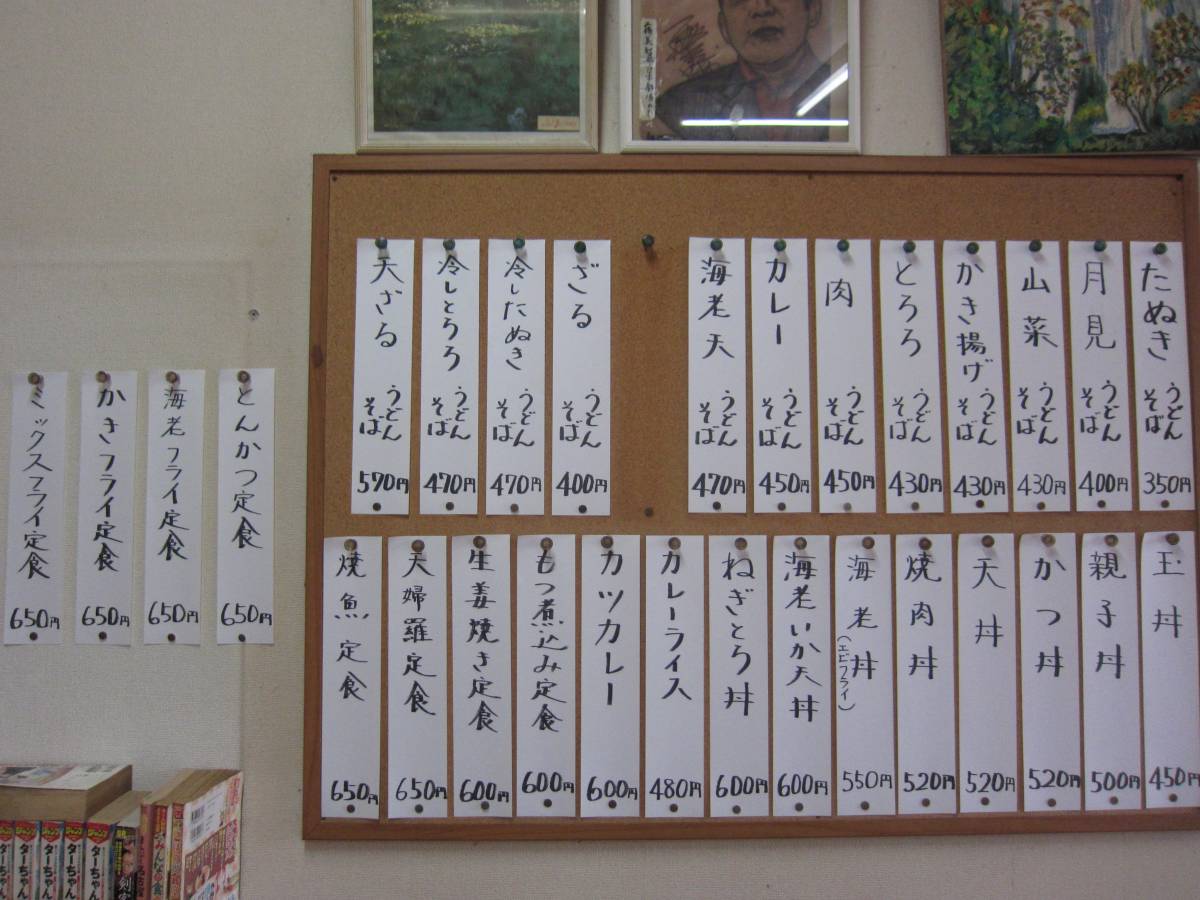 たぬき うどん そば 350円
月見 うどん そば 400円
山菜 うどん そば 430円
かき揚げ うどん そば 430円
とろろ うどん そば 430円
肉 うどん そば 450円
カレー うどん そば 450円
海老天 うどん そば 470円
ざる うどん そば 400円
冷したぬき うどん そば 470円
冷しとろろ うどん そば 470円
天ざる うどん そば 570円
玉丼 450円
親子丼 500円
かつ丼 520円
天丼 520円
焼肉丼 520円
海老丼 (エビフライ) 550円
海老いか天丼 600円
ねぎとろ丼 600円
カレーライス 480円
カツカレー 600円
もつ煮込み定食 600円
生姜焼き定食 600円
天婦羅定食 650円
焼魚定食 650円
とんかつ定食 650円
海老フライ定食 650円
かきフライ定食 650円
ミックスフライ定食 650円
ターちゃん
ターちゃん
ターちゃん
ターちゃん
みんなの食